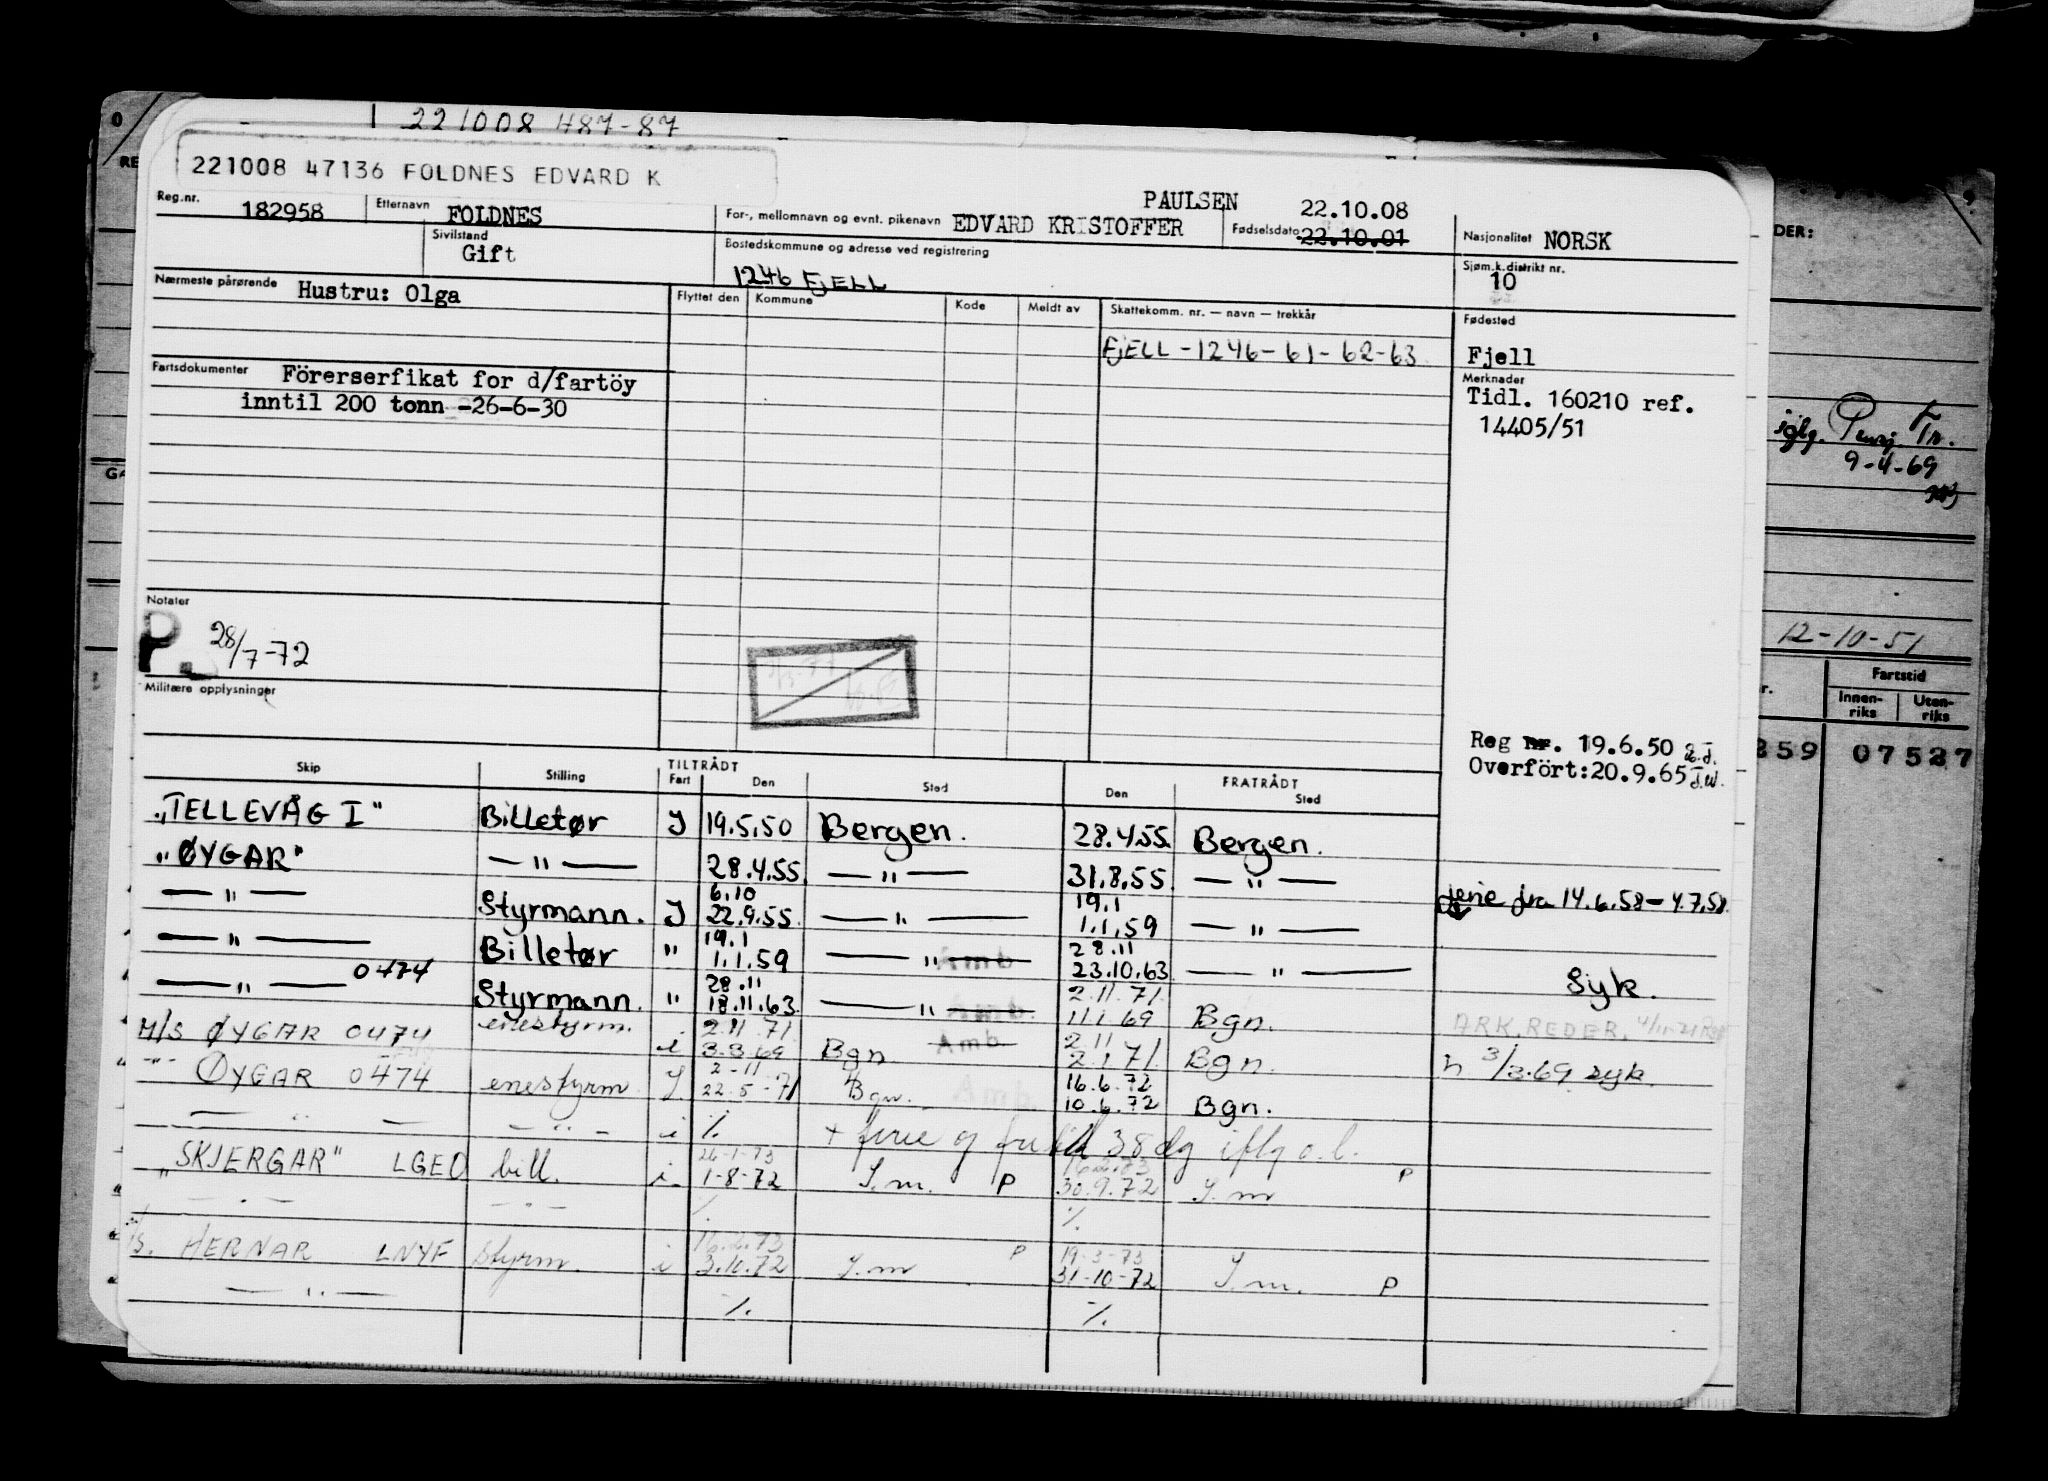 221008 487-87
221008 47136 FOLDNES EDVARD K
Reg.nr. 182958
Etternavn FOLDNES
For-, mellomnavn og evnt. pikenavn EDVARD KRISTOFFER PAULSEN
Fødselsdato 22.10.08
22.10.01
Nasjonalitet NORSK
Sivilstand
Gift
Bostedskommune og adresse ved registrering
1246 FJELL
Sjøm.k.distrikt nr.
10
Nærmeste pårørende Hustru: Olga
Flyttet den Kommune Kode Meldt av Skattekomm. nr. — navn — trekkår
FJELL - 1246 - 61 - 62 - 63
Fødested
Fjell
Fartsdokumenter Förerserfikat for d/fartöy
inntil 200 tonn -26-6-30
Merknader
Tidl. 160210 ref.
14405/51
Notater
P. 28/7-72
Militære opplysninger
Reg nr. 19.6.50
Overfört: 20.9.65
Skip Stilling TILTRÅDT Fart Den Sted FRATRÅDT Den Sted
"TELLEVÅG I" Billetør J 19.5.50 Bergen. 28.4.55. Bergen.
"ØYGAR" — " — 28.4.55. — " — 31.8.55 — " —
— " — Styrmann. J 6.10 22.9.55. — " — 19.1 1.1.59 — " — ferie fra 14.6.58 - 4.7.58.
— " — Billetør " 19.1 1.1.59 — " — Amb 28.11 23.10.63 — " — Syk.
— " — 0474 Styrmann. " 28.11 18.11.63. — " — Amb. 2.11.71. 11.1.69 Bgn. ARK. REDER.
M/S ØYGAR 0474 enestyrm. i 2.11.71. 3.3.69 Bgn Amb 2.11 2.1.71. Bgn. 3/3.69 syk.
-"- ØYGAR 0474 enestyrm J. 2-11 22.5-71 Bgn. Amb. 16.6.72 10.6.72 Bgn.
— " — - " - i %. + ferie og 38 dg iflg o.l.
"SKJERGAR" LGEO bill. i. 26-1-73 1-8-72 J.m. P 16.2.73 30.9.72 J.m P
— " — - " - %. %.
HERNAR LNYF styrm. i 16.2.73 3.10.72 J.m P 19-3-73 31-10-72 J.m. P
— " — %. %.
DER:
iflg.
9-4-69
12-10-51
Fartstid
Innen-riks Uten-riks
859 07527